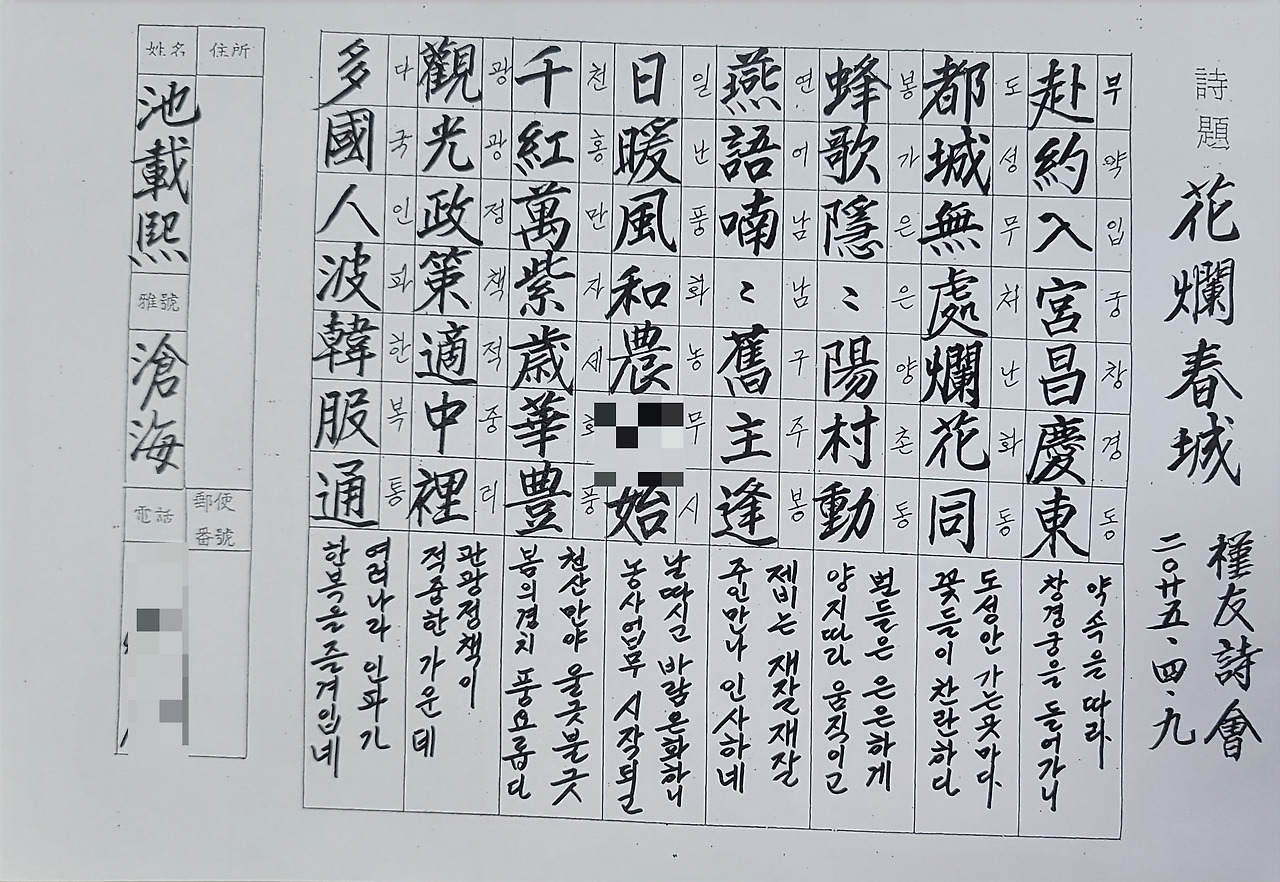 詩題 花爛春城
槿友詩會
二〇廿五、四、九
부약입궁창경동
赴約入宮昌慶東
도성무처난화동
都城無處爛花同
봉가은은양촌동
蜂歌隱〻陽村動
연어남남구주봉
燕語喃〻舊主逢
일난풍화농무시
日暖風和農始
천홍만자세화풍
千紅萬紫歲華豊
광광정책적중리
觀光政策適中裡
다국인파한복통
多國人波韓服通
약속은 따라
창경궁을 들어가니
도성안 가는곳마다
꽃들이 찬란하다
벌들은 은은하게
양지따라 움직이고
제비는 재잘재잘
주인만나 인사하네
날따시고 바람온화하니
농사업무 시작되
천산만야 울긋불긋
봄의경치 풍요롭다
관광정책이
적중한 가운데
여러나라 인파가
한복을 즐겨입네
住所
郵便
番號
姓名
池載熙
雅號
滄海
電話